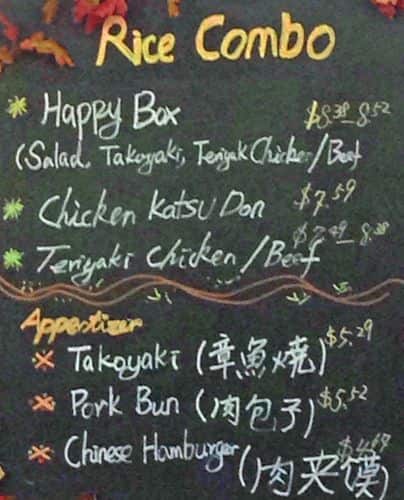 Rice Combo
Happy Box $8.38-8.52
(Salad, Takoyaki, Teriyak Chicken/Beef
Chicken Katsu Don $7.59
Teriyaki Chicken/Beef $7.49-8.38
Appestizer
Takoyaki (章魚燒) $5.29
Pork Bun (肉包子) $5.52
Chinese Hamburger (肉夹馍) $4.69